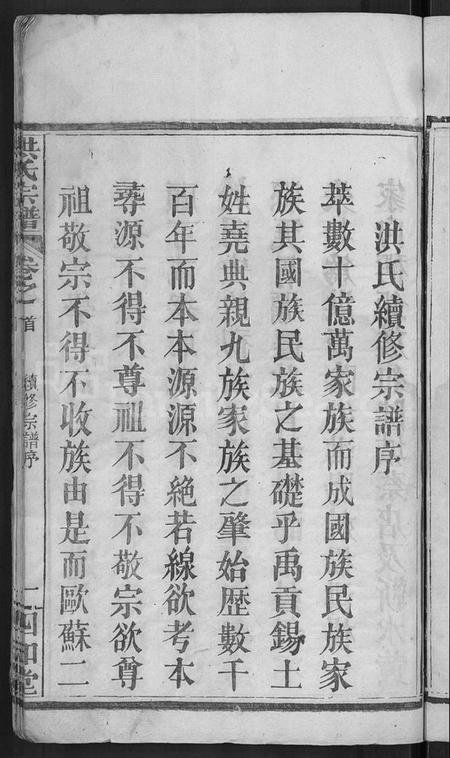 洪氏續修宗譜序
萃數十億萬家族而成國族民族家
族其國族民族之基礎乎禹貢錫土
姓堯典親九族家族之肇始歴數千
百年而本本源源不絕若線欲考本
尋源不得不尊祖不得不敬宗欲尊
祖敬宗不得不收族由是而歐蘇二
洪氏宗譜
卷之首
續修宗譜序